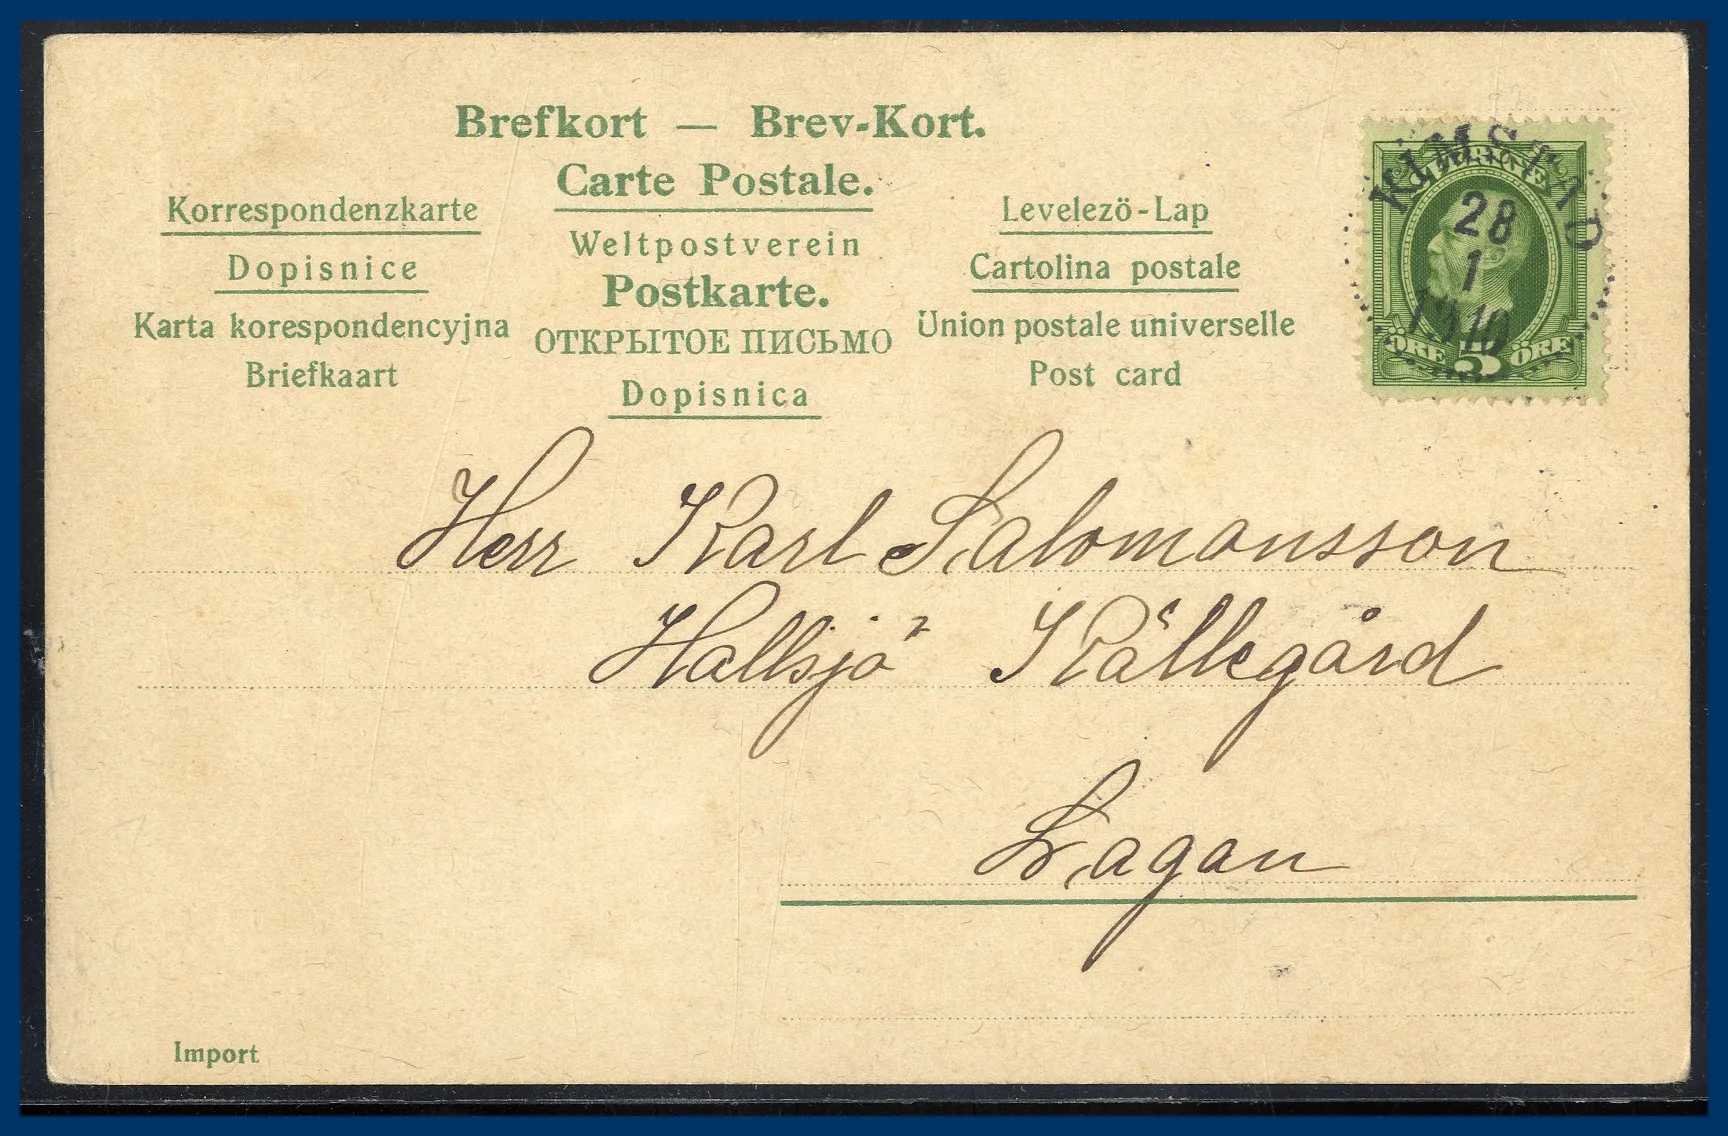 Brefkort — Brev-Kort.
Carte Postale.
Korrespondenzkarte
Dopisnice
Karta korespondencyjna
Briefkaart
Weltpostverein
Postkarte.
ОТКРЫТОЕ ПИСЬМО
Dopisnica
Levelező-Lap
Cartolina postale
Union postale universelle
Post card
KIMSTAD
28
1
1910
SVERIGE
ÖRE 5 ÖRE
Herr Karl Salomonsson
Hallsjö Källegård
Lagan
Import